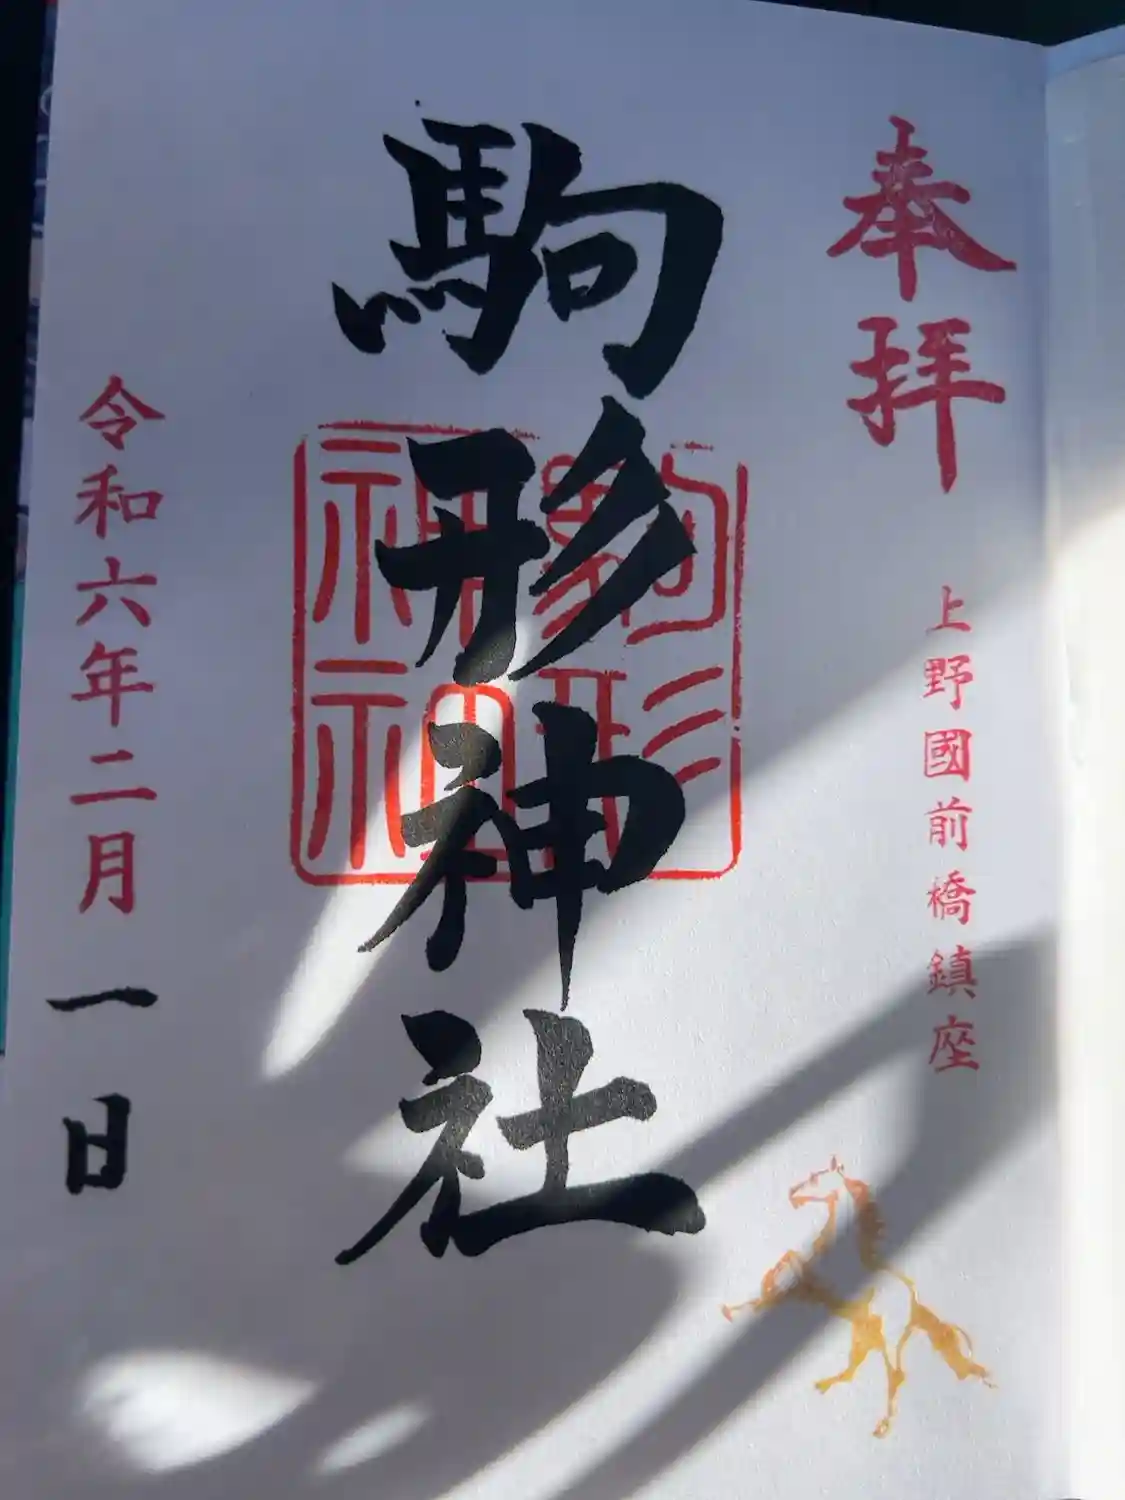 奉拝
上野國前橋鎮座
駒形神社
駒形
神社
令和六年二月一日